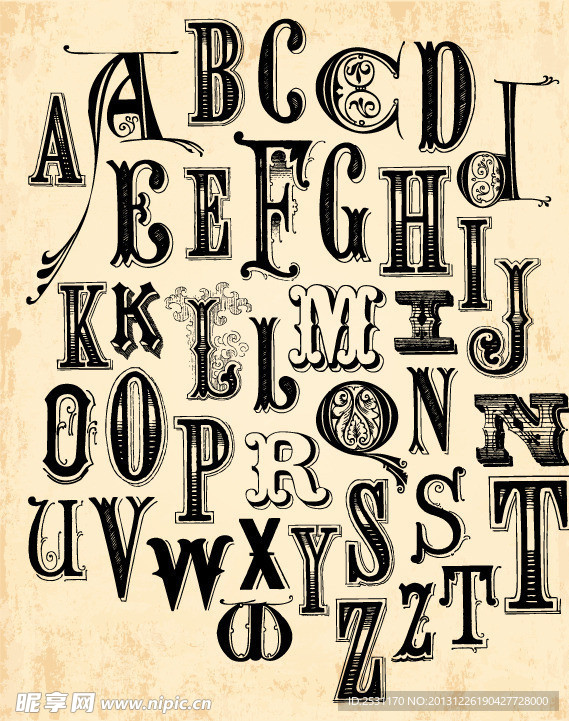 A A B C C D d
E E F G H I J
K K L L M I
O O P R Q N N
U V W X Y S S T
Ɯ Z Z T
昵享网 www.nipic.cn
ID:2531170 NO:20131226190427728000